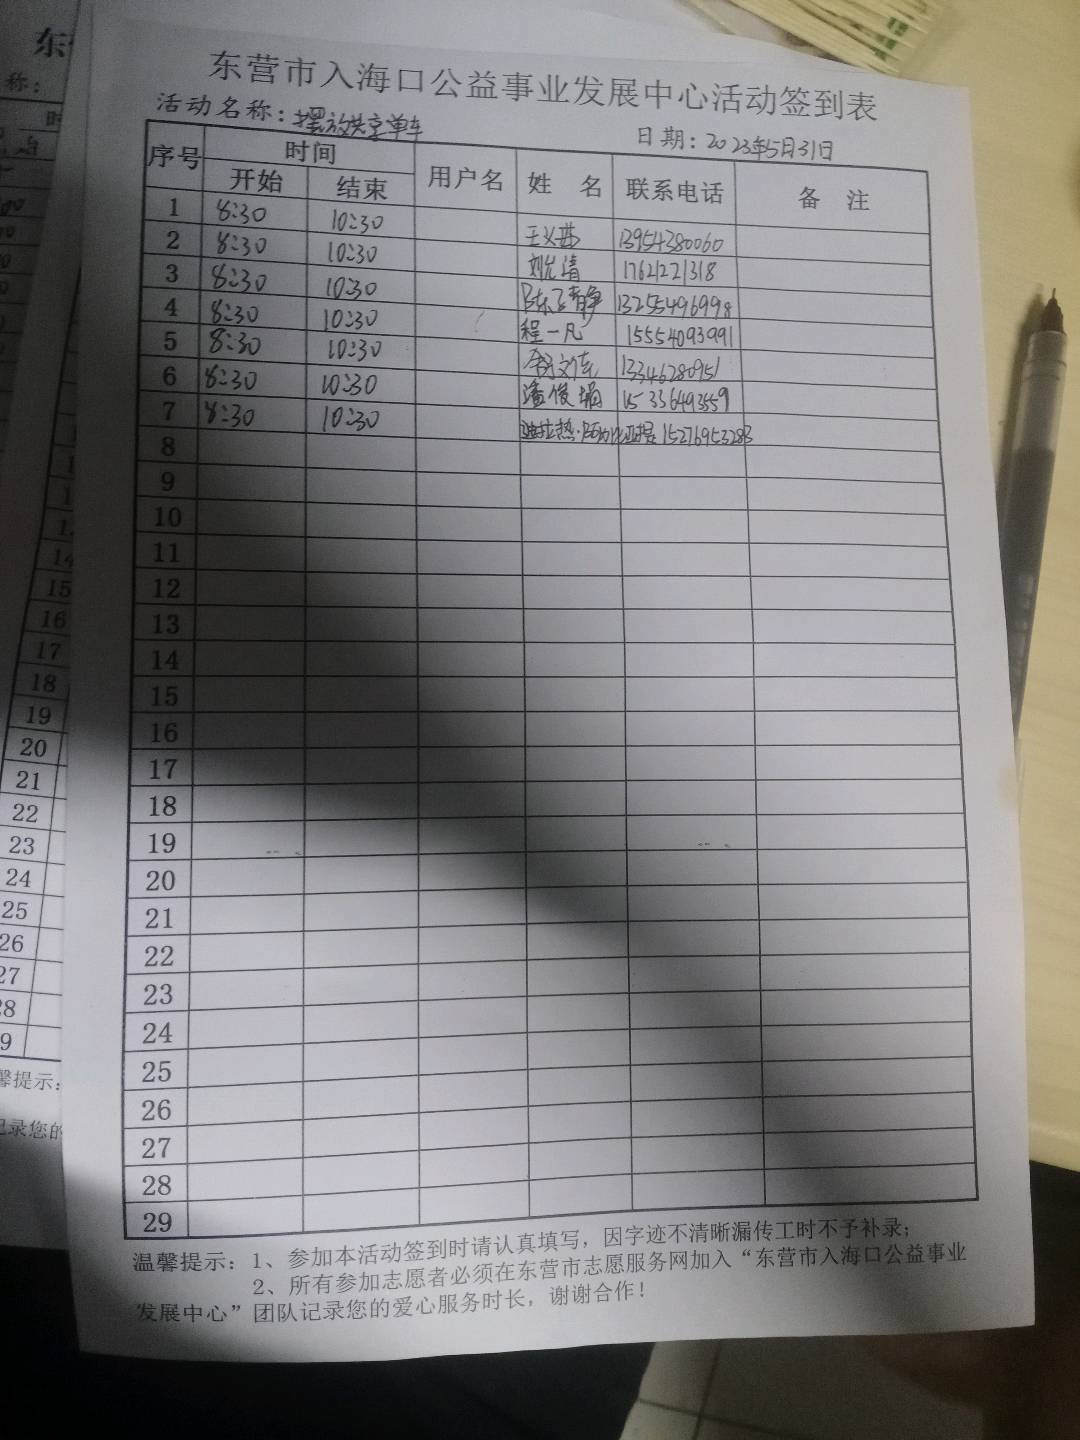 东营市入海口公益事业发展中心活动签到表
活动名称：摆放共享单车 日期：2023年5月31日
序号 时间 用户名 姓 名 联系电话 备 注
开始 结束
1 8:30 10:30 13954380060
2 8:30 10:30 17621221318
3 8:30 10:30 13255496998
4 8:30 10:30 程一凡 15554093991
5 8:30 10:30 13346280951
6 8:30 10:30 15336493559
7 8:30 10:30 15276953283
8
9
10
11
12
13
14
15
16
17
18
19
20
21
22
23
24
25
26
27
28
29
温馨提示：1、参加本活动签到时请认真填写，因字迹不清晰漏传工时不予补录；
2、所有参加志愿者必须在东营市志愿服务网加入“东营市入海口公益事业
发展中心”团队记录您的爱心服务时长，谢谢合作！